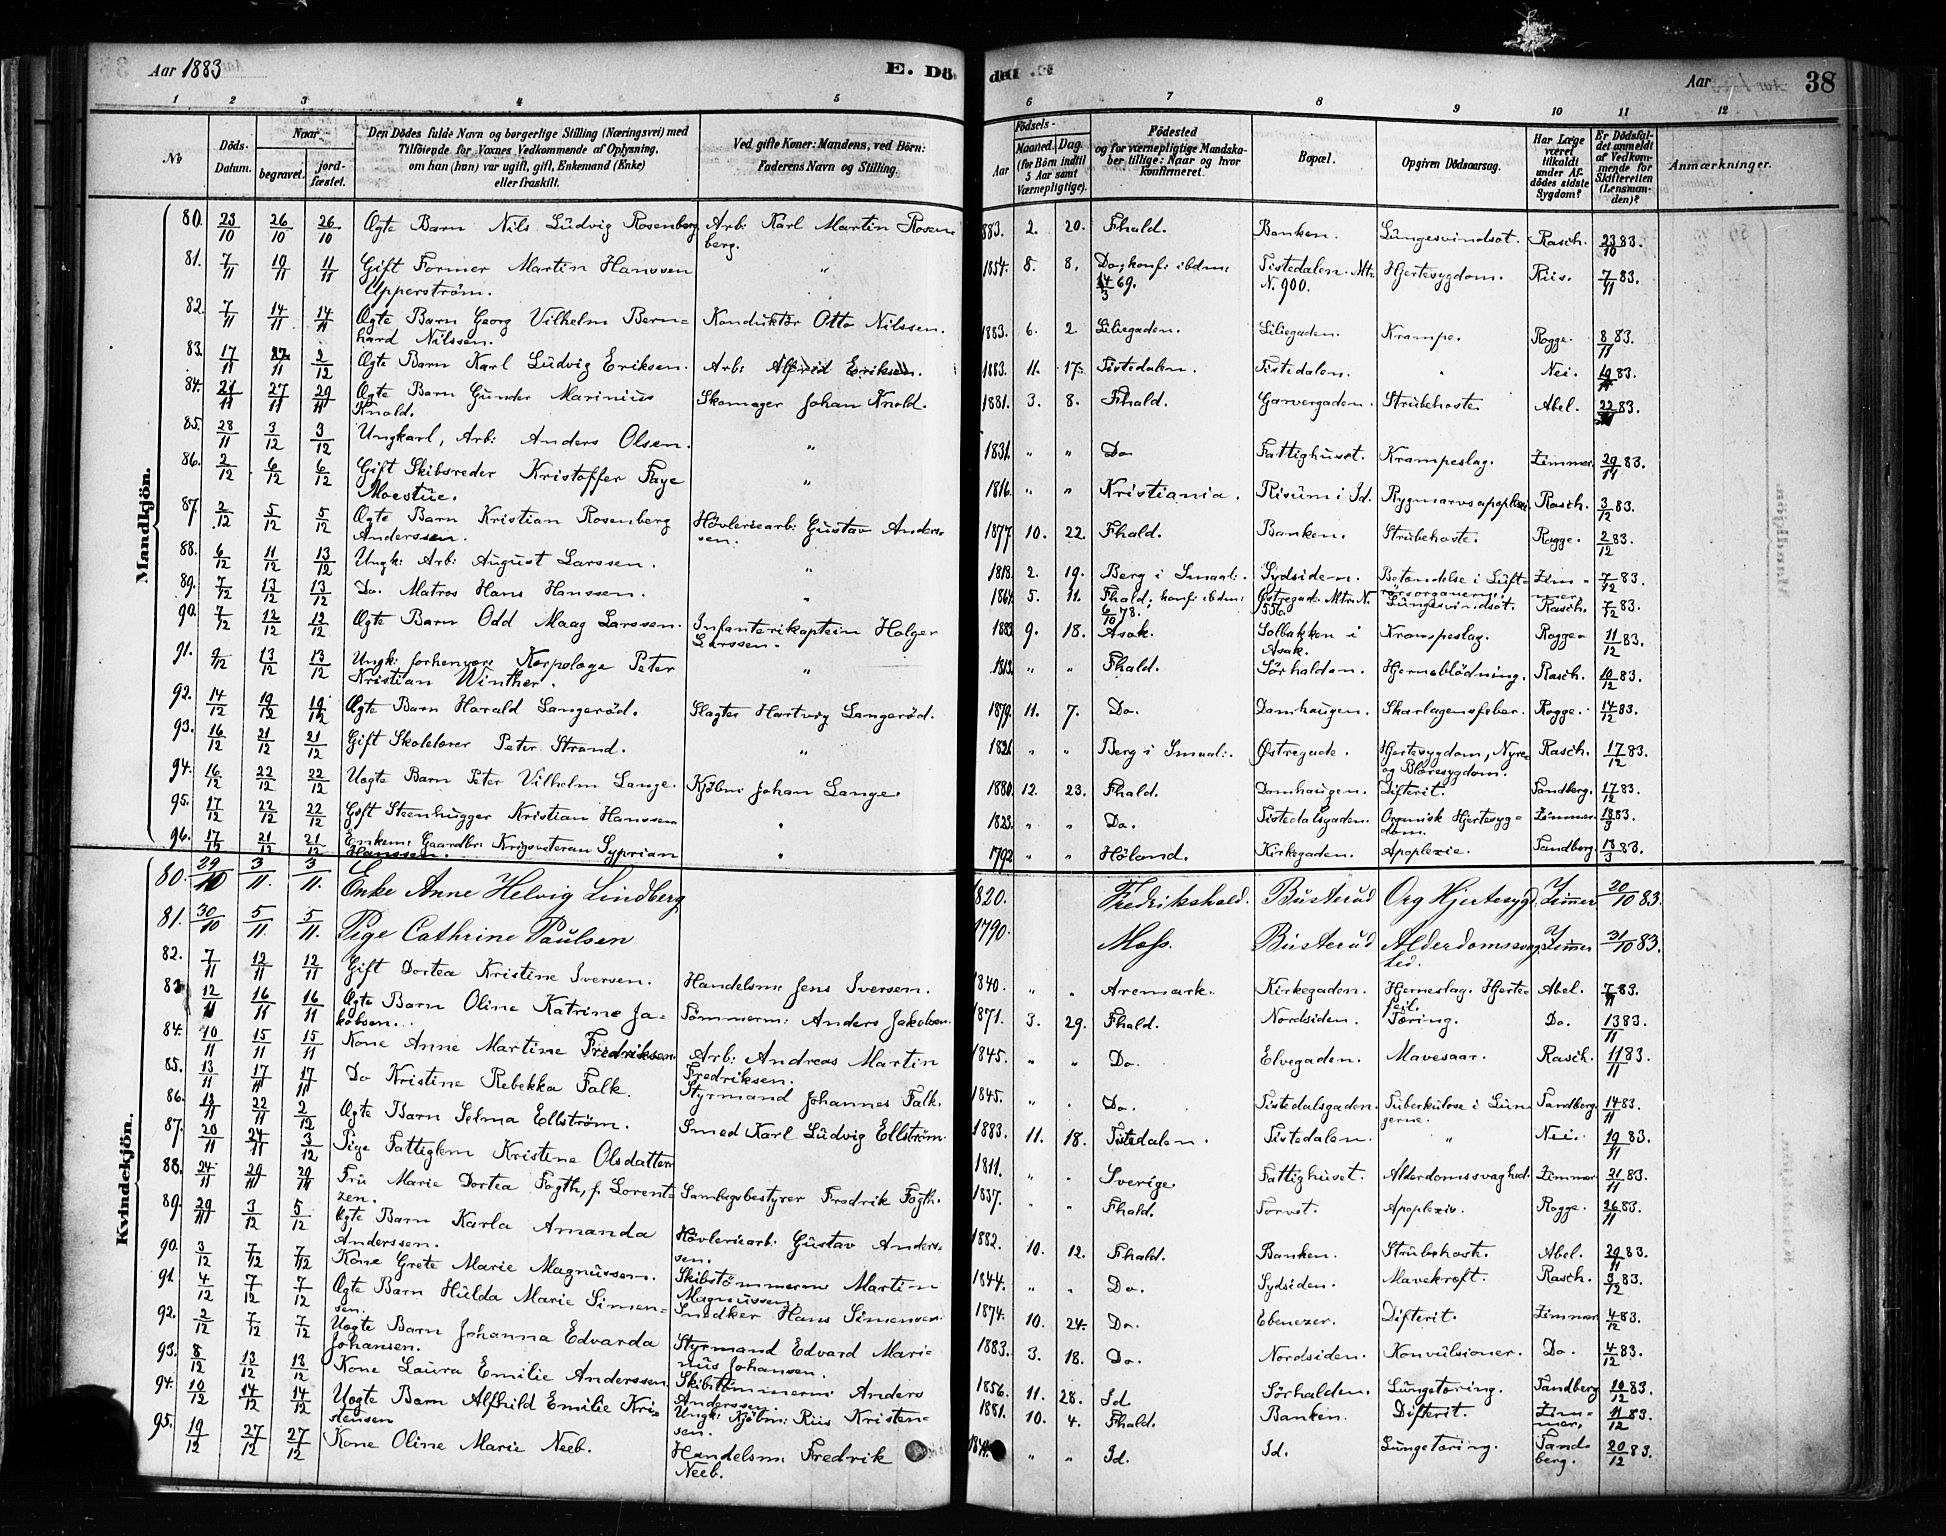 Aar 1883
E. Dö
de
Aar
38
1 2 3 4 5 6 7 8 9 10 11 12
No
Döds-Datum.
Naar
begravet.
jord-fæstet.
Den Dödes fulde Navn og borgerlige Stilling (Næringsvei) med
Tilföiende for Voxnes Vedkommende af Oplysning,
om han (hun) var ugift, gift, Enkemand (Enke)
eller fraskilt.
Ved gifte Koner: Mandens, ved Börn:
Faderens Navn og Stilling.
Födsels-
Aar
Maaned. Dag
(for Börn indtil
5 Aar samt
Værnepligtige).
Födested
og for værnepligtige Mandska-
ber tillige: Naar og hvor
konfirmeret.
Bopæl.
Opgiven Dödsaarsag.
Har Læge
været
tilkaldt
under Af-
dödes sidste
Sygdom?
Er Dödsfal-
det anmeldt
af Vedkom-
mende for
Skifteretten
(Lensman-
den)?
Anmærkninger.
Mandkjön.
80. 23/10 26/10 26/10 Ægte Barn Nils Ludvig Rosenberg. Arb: Karl Martin Rosen berg. 883. 2. 20. Fhald. Banken. Lungesvindsot. Rasch. 23/10 83.
81. 7/11 11/11 Gift Former Martin Hanssen Upperström. " 1854. 8. 8. Do; konf: ibdm: 69. Tistedalen. Mtr. N. 900. Hjertesygdom. Riis. 7/11 83.
82. 7/11 14/11 14/11 Ægte Barn Georg Vilhelm Bern= hard Nilssen. Konduktör Otto Nilssen. 1883. 6. 2. Liliegaden. Liliegaden. Krampe. Rogge. 8/11 83.
83. 17/11 27/11 2/12 Ægte Barn Karl Ludvig Eriksen. Arb: Alfred Eriksen. 1883. 11. 17. Tistedalen. Tistedalen. " Nei. 19/11 83.
84. 21/11 27/11 29/11 Ægte Barn Gunder Marinius Knold. Skomager Johan Knold. 1881. 3. 8. Fhald. Garvergaden. Strubehoste. Abel. 22/11 83.
85. 28/11 3/12 3/12 Ungkarl, Arb: Anders Olsen. " 1831. " " Do Fattighuset. Krampeslag. Zimmer. 29/11 83.
86. 2/12 6/12 6/12 Gift Skibsreder Kristoffer Faye Moestue. " 1816. " " Kristiania. Risum i Id. Rygmarvsapoplexi. Rasch. 3/12 83.
87. 2/12 5/12 5/12 Ægte Barn Kristian Rosenberg Anderssen. Hövleriearb: Gustav Anders= sen. 1877. 10. 22. Fhald. Banken. Strubehoste. Rogge. 2/12 83.
88. 6/12 11/12 13/12 Ungk: Arb: August Larssen. " 1818. 2. 19. Berg i Smaal: Sydsiden. Betændelse i Luft= rörsorganerne. Zim= mer. 7/12 83.
89. 7/12 13/12 13/12 Do. Matros Hans Hanssen. " 1864. 5. 11. Fhald; konf: ibdm: 6/10 78. Østregade Mtr. N. 556. Lungesvindsot. Rasch. 7/12 83.
90. 7/12 12/12 12/12 Ægte Barn Odd Maag Larssen. Infanterikaptein Holger Larssen. 1883. 9. 18. Asak. Solbakken i Asak. Krampeslag. Rogge. 11/12 83.
91. 9/12 13/12 13/12 Ungk: forhenvær: Korpslæge Peter Kristian Winther. " 1813. " " Fhald. Sörhalden. Hjerneblödning. Rasch. 10/12 83.
92. 14/12 19/12 19/12 Ægte Barn Harald Langeröd. Slagter Hartvig Langeröd. 1879. 11. 7. Do. Damhaugen. Skarlagensfeber. Rogge. 14/12 83.
93. 16/12 21/12 21/12 Gift Skolelærer Peter Strand. " 1821. " " Berg i Smaal: Østregade. Hjertesygdom, Nyre= og Blæresygdom. Rasch. 17/12 83.
94. 16/12 22/12 22/12 Uægte Barn Peter Vilhelm Lange. Kjöbm Johan Lange 1880. 12. 23. Fhald. Damhaugen. Difterit. Sandberg. 17/12 83.
95. 17/12 22/12 22/12 Gift Steenhugger Kristian Hanssen " 1823. " " Do. Tistedalsgaden. Organisk Hjertesyg= dom. Zimmer. 83.
96. 17/12 21/12 21/12 Enkem: Gaardbr: Krigsveteran Syprian Hanssen. " 1792 " " Höland. Kirkegaden. Apoplexie. Sandberg. 83.
Kvindekjön.
80. 29/10 3/11. 3/11. Enke Anne Helvig Lindberg 1820. Fredrikshald. Busterud Org Hjertesygd. Zimmer 83.
81. 30/10 5/11 5/11. Pige Cathrine Paulsen 1790. Moss. Busterud Alderdomssvag hed. Zimmer 31/10 83.
82. 7/11 12/11 12/11 Gift Dortea Kristine Iversen. Handelsm: Jens Iversen. 1840. " " Aremark. Kirkegaden. Hjerneslag. Hjerte= feil. Abel. 7/11 83.
83. 12/11 16/11 16/11 Ægte Barn Oline Katrine Ja= kobsen. Tömmerm: Anders Jakobsen. 1871. 3. 29. Fhald. Nordsiden. Tæring. Do. 13/11 83.
84. 10/11 15/11 15/11 Kone Anne Martine Fredriksen. Arb: Andreas Martin Fredriksen. 1845. " " Do. Elvegaden. Mavesaar. Rasch. 11/11 83.
85. 13/11 17/11 17/11 Do Kristine Rebekka Falk. Styrmand Johannes Falk. 1845. " " Do. Tistedalsgaden. Tuberkulose i Lun= gerne. Sandberg. 14/11 83.
86. 18/11 22/11 2/12 Ægte Barn Selma Ellström. Smed Karl Ludvig Ellström. 1883. 11. 18. Tistedalen. Tistedalen. " Nei. 19/11 83.
87. 20/11 24/11 3/12 Pige Fattiglem Kristine Olsdatter. 1811. " " Sverige. Fattighuset. Alderdomssvaghed. Zimmer. 21/11 83.
88. 24/11 29/11 29/11 Fru Marie Dortea Fogth, f. Lorent= zen. Samlagsbestyrer Fredrik Fogth. 1837. " " Fhald. Torvet. Apoplexie. Rogge. 26/11 83.
89. 29/11 3/12 5/12 Ægte Barn Karla Amanda Anderssen. Hövleriearb: Gustav Anders= sen. 1882. 10. 12. Fhald. Banken. Strubehoste. Abel. 29/11 83.
90. 3/12 7/12 7/12 Kone Grete Marie Magnussen. Skibstömmerm: Martin Magnussen. 1844. " " Do. Sydsiden. Mavekræft. Rasch. 3/12 83.
91. 4/12 7/12 7/12 Ægte Barn Hulda Marie Simen= sen. Snedker Hans Simensen. 1874. 10. 24. Do. Ebenezer. Difterit. Zimmer 4/12 83.
92. 2/12 7/12 7/12 Uægte Barn Johanna Edvarda Johansen. Styrmand Edvard Mari= nus Johansen. 1883. 3. 18. Do. Nordsiden. Konvulsioner. Do. 4/12 83.
93. 8/12 13/12 13/12 Kone Laura Emilie Anderssen. Skibstömmerm: Anders Anderssen. 1856. 11. 28. Id Sörhalden. Lungetæring. Sandberg 10/12 83.
94. 10/12 14/12 14/12 Uægte Barn Alfhild Emilie Kri= stensen Ungk: Kjöbm: Riis Kristen= sen. 1881. 10. 4. Fhald. Banken. Difterit. Zim= mer. 11/12 83.
95. 19/12 27/12 27/12 Kone Oline Marie Neeb. Handelsm: Fredrik Neeb. " " Id. Id. Lungetæring. Sand= berg. 20/12 83.